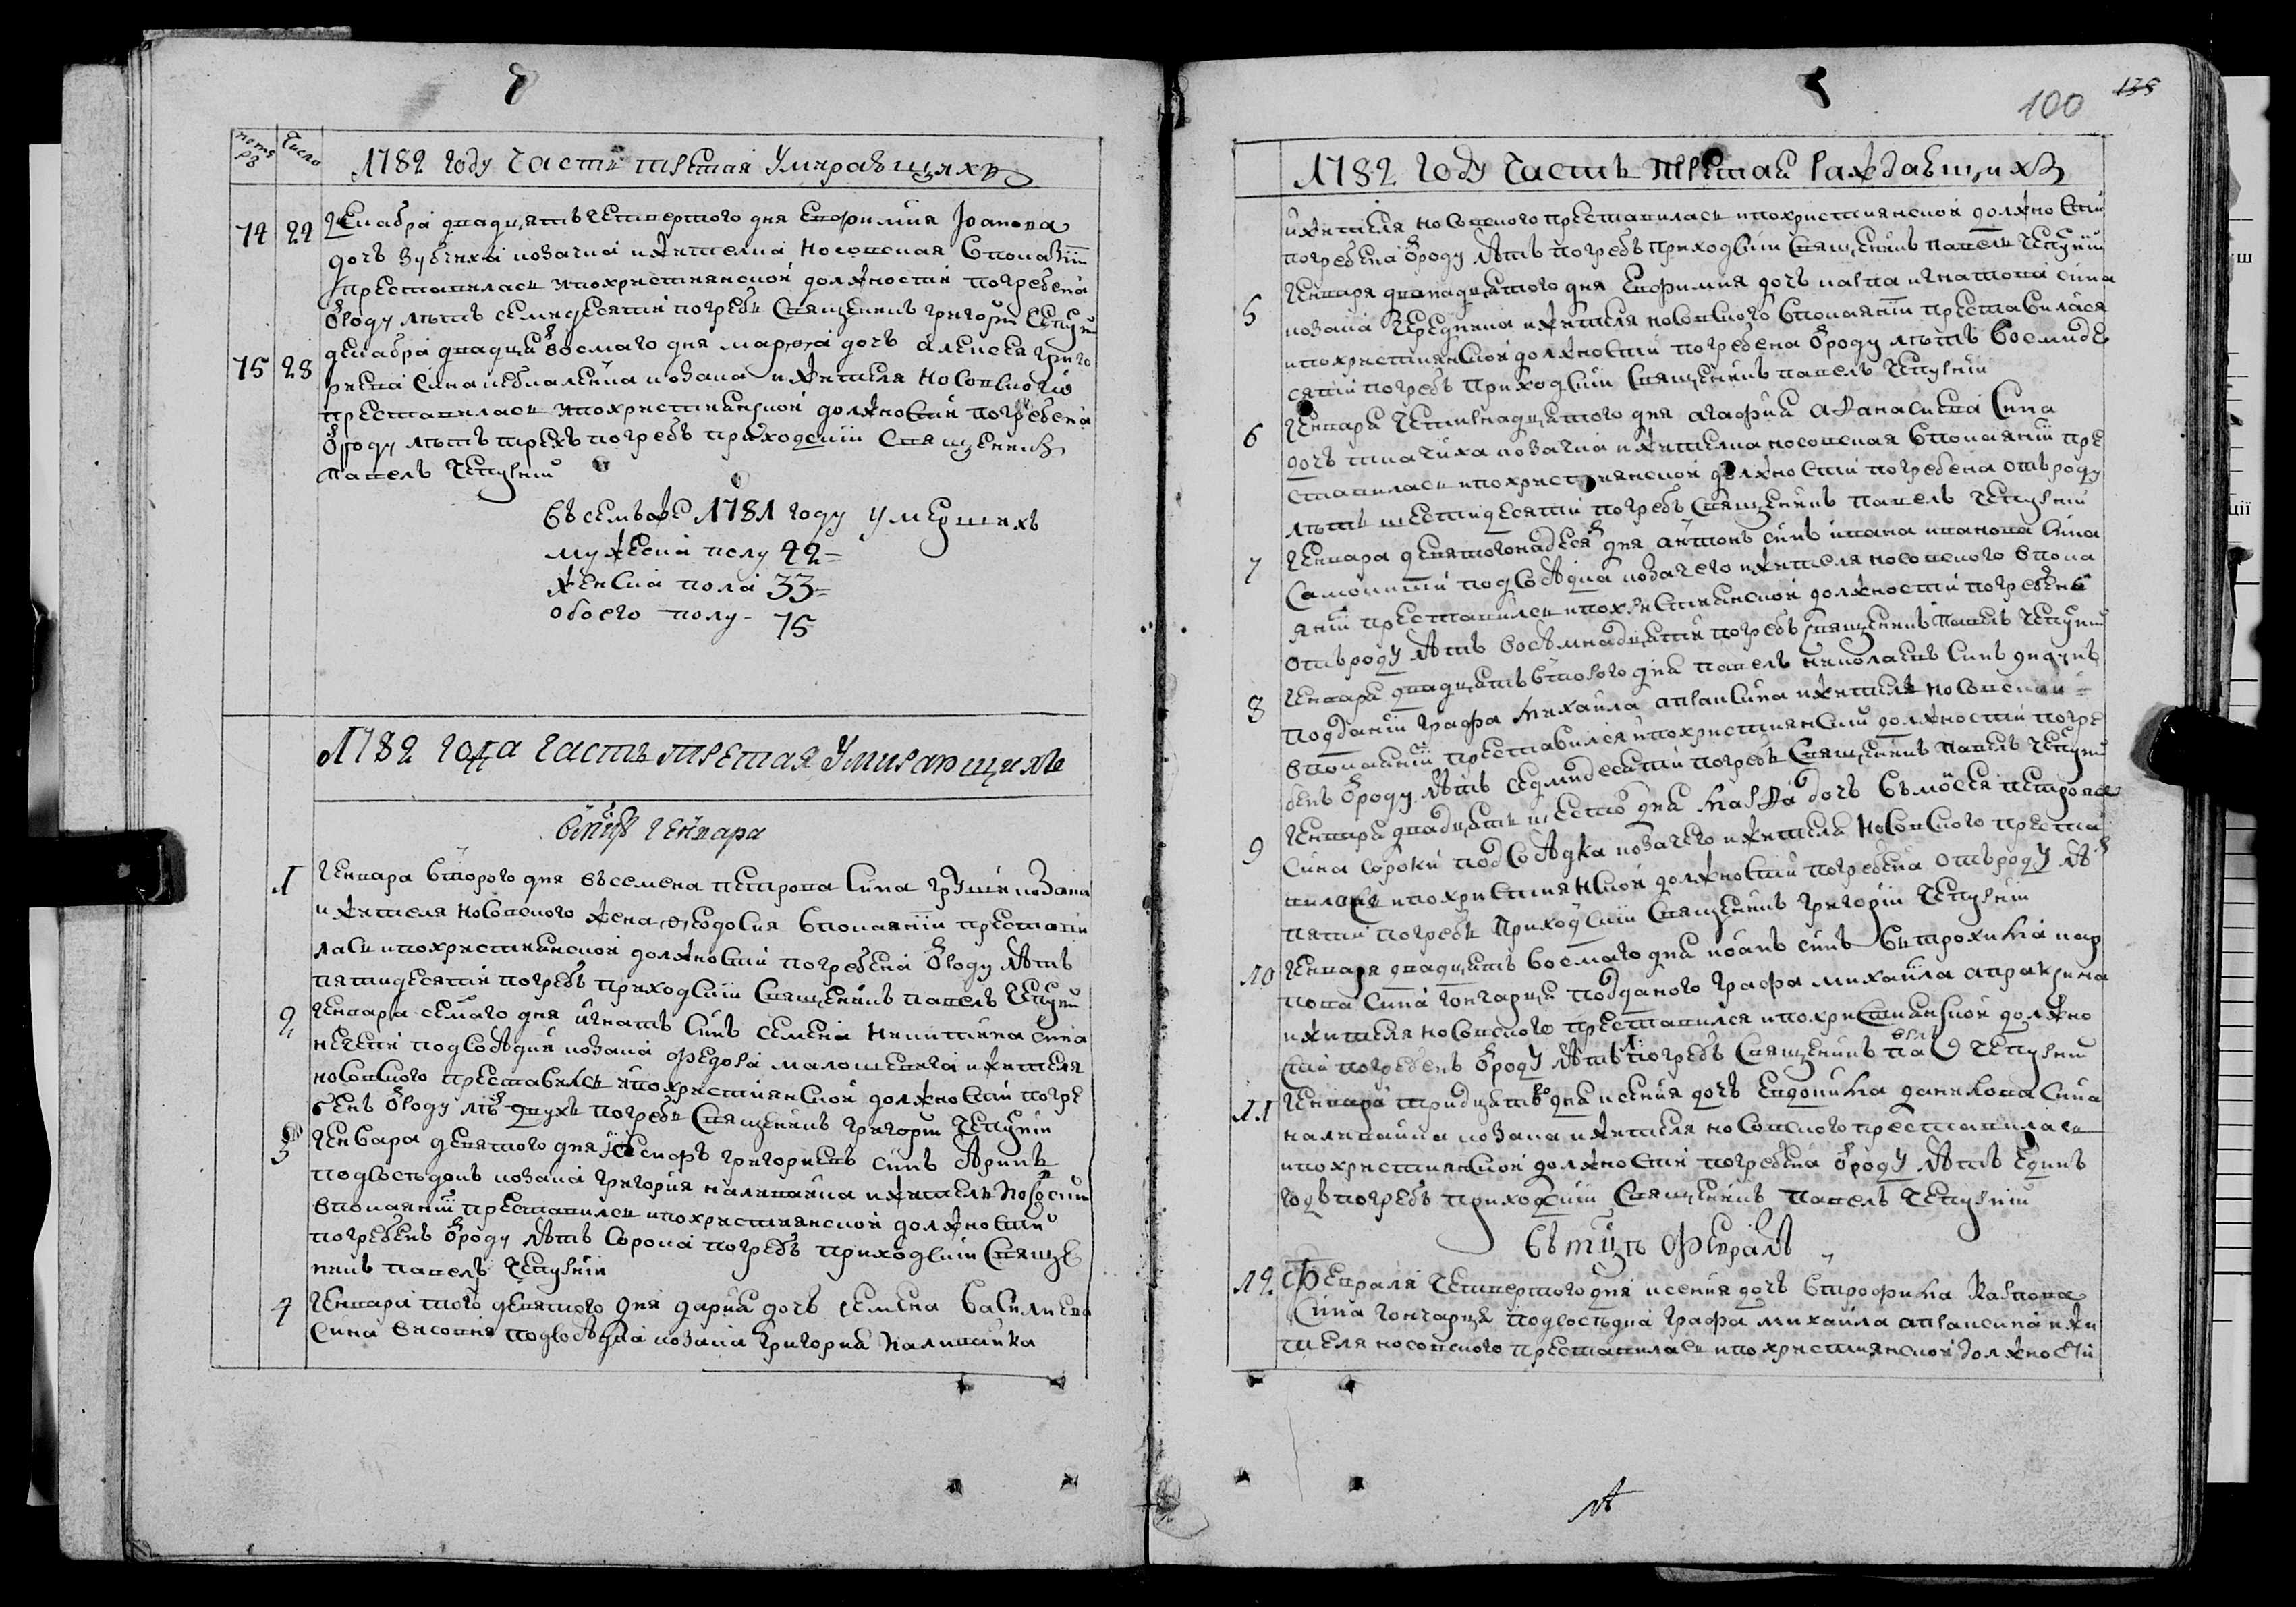 номеръ Число
1782 году часть третая Умиравщихъ
74 24 декабра двадцять четвертого дня Евфимия Іоанова
дочь Зубчиха козачка жителка носовская вполазіи
преставилась ипохристиянской должности погребена
ѿроду лѣтъ семидесяти погребъ Священикъ григорій Чепурній
75 28 декабра двадцять восмаго дня марѳа дочь алексея григо
риева Сина козака жителя Носовского
преставилась ипохристиянской должности погребена
ѿроду лѣтъ трехъ погребъ приходскій Священикъ
Павелъ Чепурній
Въ семъже 1781 году умершихъ
мужеска полу 42=
женска пола 33=
обоего полу- 75
1782 года часть третая Умирающихъ
Вмцѣ генвара
1 Генвара второго дня въ семена петрова Сина груши козака
и жителя Носовского жена ѳеодосия впокаяніи престави
лась ипохристиянской должности погребена ѿроду лѣтъ
пятидесяти погребъ приходскій Священикъ павелъ Чепурній
2 Генвара семаго дня игнатъ Синъ семена никитина Сина
подсосѣдка козака федора малошенка жителя
носовского преставилсь ипохристиянской должности погре
бенъ ѿроду лѣтъ двухъ погребъ Священикъ григорій Чепурній
3 Генвара девятого дня іосифъ григориевъ синъ
подсосѣдокъ козака григория наливайка житель носовскій
впокаяніи преставилсь ипохристиянской должности
погребенъ ѿроду лѣтъ Сорока погребъ приходскій Священ
никъ павелъ Чепурній
4 Генвара того девятого дня дария дочь семена Василиева
Сина подсосѣдка козака григория Наливайка
100
135
1782 году часть третая
и жителя носовского преставилась ипохристиянской должности
погребена ѿроду лѣтъ погребъ приходскій Священикъ павелъ Чепурній
5 Генваря дванадцятого дня Евфимия дочь карпа игнатова сина
козака жителя носовского впокаяніи преставилася
ипохристиянской должности погребена ѿроду лѣтъ восмиде
сяти погребъ приходскій Священикъ павелъ Чепурній
6 Генвара четирнадцятого дня агафия аѳанасиева Сина
дочь ткачиха козачка жителка носовская впокаяніи пре
ставилась ипохристиянской должности погребена отъроду
лѣтъ шестидесяти погребъ Священикъ павелъ Чепурній
7 Генвара девятогонадесять дня антонъ синъ ивана иванова Сина
подсосѣдка козачего жителя носовского впока
яніи преставилсь ипохристиянской должности погребенъ
отъроду лѣтъ восѣмнадцяти погребъ Священикъ Павелъ Чепурній
8 Генвара двадцять второго дня павелъ николаевъ Синъ
подданій графа михаила апраксина житель носовскій
впокаяніи преставился ипохристиянской должности погре
бенъ ѿроду лѣтъ седмидесяти погребъ Священикъ Павелъ Чепурній
9 Генвара двадцять шестого дня марѳа дочь въ мойсея петрова
Сина сороки подсосѣдка козачего жителя Носовского преста
вилась ипохристиянской должности погребена отъроду лѣтъ
пяти погребъ приходскій Священикъ григорій Чепурній
10 Генваря двадцять восмаго дня иоанъ синъ въ трохима кар
пова Сина гончарця подданого графа михаила апраксина
жителя носовского преставился ипохристиянской должно
сти погребенъ ѿроду лѣтъ погребъ Священикъ павелъ Чепурній
11 Генвара тридцять дня ксения дочь Евдокима данилова Сина
наливайка козака жителя носовского преставилась
ипохристиянской должности погребена ѿроду лѣтъ единъ
годъ погребъ приходскій Священикъ павелъ Чепурній
Въ мцѣ февралѣ
12. Февраля четвертого дня ксения дочь втрофима Карпова
Сина гончарця подсосѣдка графа михаила апраксина жи
теля носовского преставилась ипохристиянской должности